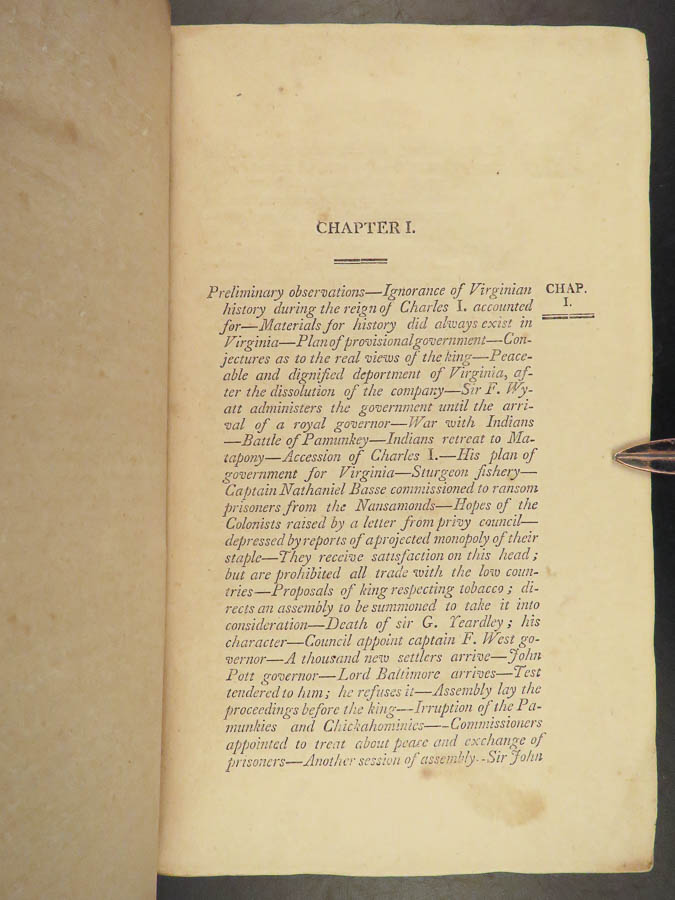 CHAPTER I.
Preliminary observations—Ignorance of Virginian
CHAP.
I.
history during the reign of Charles I. accounted
for—Materials for history did always exist in
Virginia—Plan of provisional government—Con-
jectures as to the real views of the king—Peace-
able and dignified deportment of Virginia, af-
ter the dissolution of the company—Sir F. Wy-
att administers the government until the arri-
val of a royal governor—War with Indians
—Battle of Pamunkey—Indians retreat to Ma-
tapony—Accession of Charles I.—His plan of
government for Virginia—Sturgeon fishery—
Captain Nathaniel Basse commissioned to ransom
prisoners from the Nansamonds—Hopes of the
Colonists raised by a letter from privy council—
depressed by reports of a projected monopoly of their
staple—They receive satisfaction on this head;
but are prohibited all trade with the low coun-
tries—Proposals of king respecting tobacco; di-
rects an assembly to be summoned to take it into
consideration—Death of sir G. Yeardley; his
character—Council appoint captain F. West go-
vernor—A thousand new settlers arrive—John
Pott governor—Lord Baltimore arrives—Test
tendered to him; he refuses it—Assembly lay the
proceedings before the king—Irruption of the Pa-
munkies and Chickahominies—Commissioners
appointed to treat about peace and exchange of
prisoners—Another session of assembly--Sir John